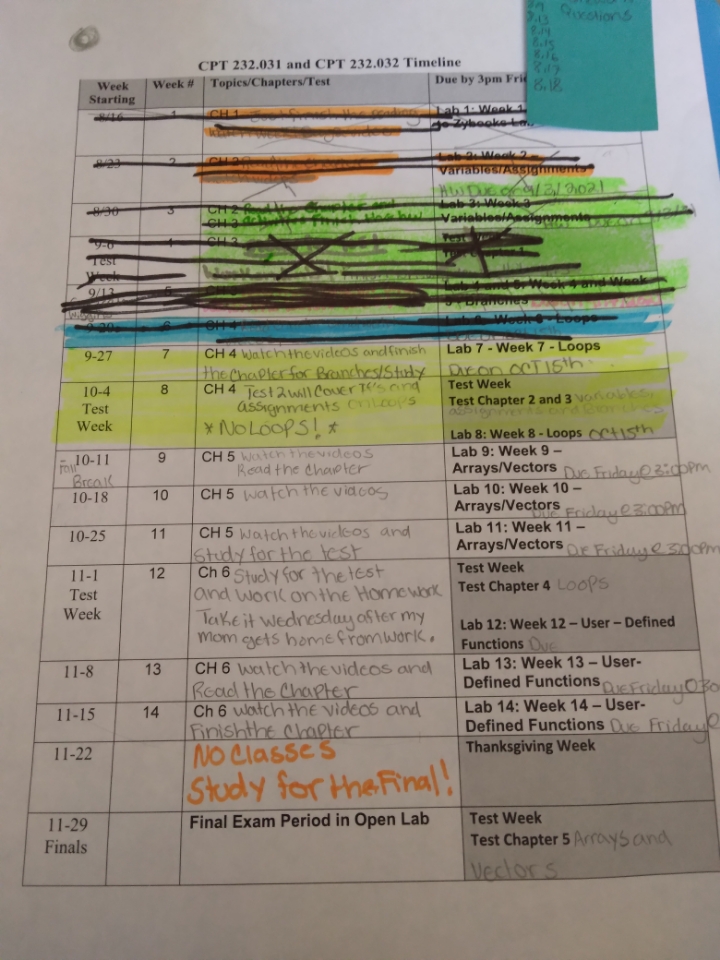 Questions
8.13
8.14
8.15
8.16
8.17
8.18
CPT 232.031 and CPT 232.032 Timeline
Week Starting Week # Topics/Chapters/Test Due by 3pm Fri
8/16 1 CH 1 Just finish the reading Lab 1: Week 1
to Zybooks La
8/23 2 CH 2 Lab 2: Week 2 –
Variables/Assignments
HW Due on 9/3/2021
8/30 3 CH 2 Lab 3: Week 3
CH 3 Variables/Assignments
9-6 4 CH 3
Test
Week
9/13 5 Lab 4 and 5: Week 4 and Week
5 - Branches
9-20 6 CH 4 Lab 6 - Week 6 - Loops
9-27 7 CH 4 Watch the videos and finish Lab 7 - Week 7 - Loops
the Chapter for Branches/Study Due on OCT 15th
10-4 8 CH 4 Test 2 will Cover Test Week
Test assignments Test Chapter 2 and 3 variables,
Week *NO LOOPS!* assignments and Branches
Lab 8: Week 8 - Loops OCT 15th
10-11 9 CH 5 Watch the videos Lab 9: Week 9 –
Fall Break Read the Chapter Arrays/Vectors Due Friday @ 3:00pm
10-18 10 CH 5 Watch the videos Lab 10: Week 10 –
Arrays/Vectors Due Friday @ 3:00pm
10-25 11 CH 5 Watch the videos and Lab 11: Week 11 –
Study for the test Arrays/Vectors Due Friday @ 3:00pm
11-1 12 Ch 6 Study for the test Test Week
Test and Work on the Homework Test Chapter 4 Loops
Week Take it Wednesday after my
mom gets home from work. Lab 12: Week 12 – User – Defined
Functions Due
11-8 13 CH 6 Watch the videos and Lab 13: Week 13 – User-
Read the Chapter Defined Functions Due Friday @
11-15 14 Ch 6 Watch the videos and Lab 14: Week 14 – User-
Finish the Chapter Defined Functions Due Friday @
11-22 NO Classes Thanksgiving Week
Study for the Final!
11-29 Final Exam Period in Open Lab Test Week
Finals Test Chapter 5 Arrays and
Vectors